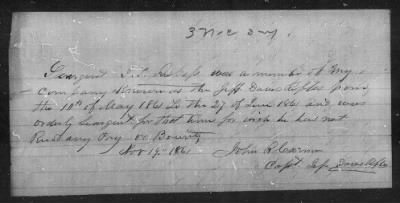 Seargent was a member of my
Company Known as the Jeff Davis Rifles from
the 10th of May 1861 to the 27 of June 1861 and was
orderly Seargent for that time for wich he has not
Pay or Bounty
Nov 19. 1861 John
Capt. Jef Davis Rifles